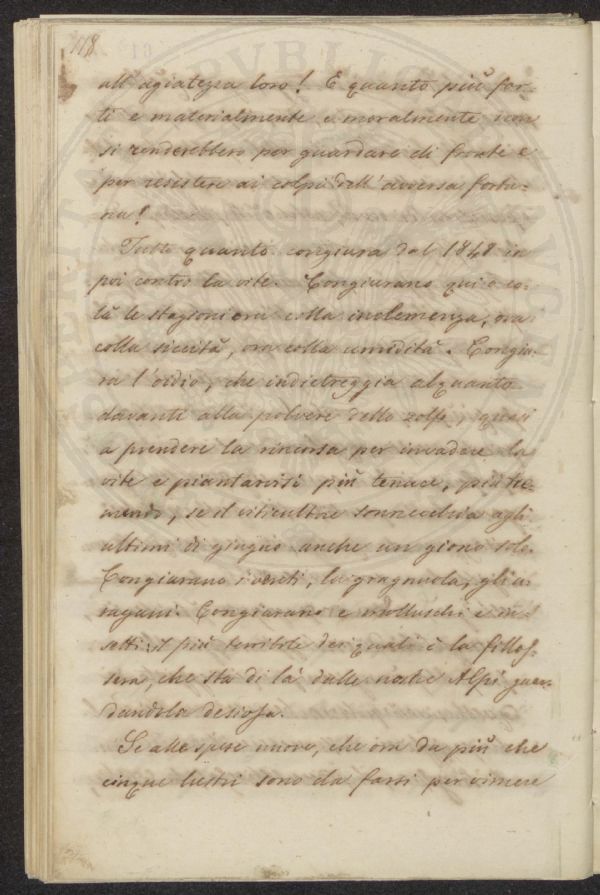 118
all'agiatezza loro! E quanto più for-
ti e materialmente e moralmente non
si renderebbero per guardare di fronte e
per resistere ai colpi dell'avversa fortu-
na!
Tutto quanto congiura dal 1848 in
poi contro la vite. Congiurano qui o co-
là le stagioni ora colla inclemenza, ora
colla siccità, ora colla umidità. Congiu-
ra l'oidio, che indietreggia alquanto
davanti alla polvere dello zolfo, quasi
a prendere la rincorsa per invadere la
vite e piantarvisi più tenace, più tre-
mendo, se il viticultore sonnecchia agli
ultimi di giugno anche un giorno solo.
Congiurano i venti, la gragnuola, gli u-
ragani. Congiurano e molluschi e in-
setti il più terribile dei quali è la fillos-
sera, che sta di là dalle nostre Alpi guar-
dandola desiosa.
Se alle spese nuove, che ora da più che
cinque lustri sono da farsi per vincere